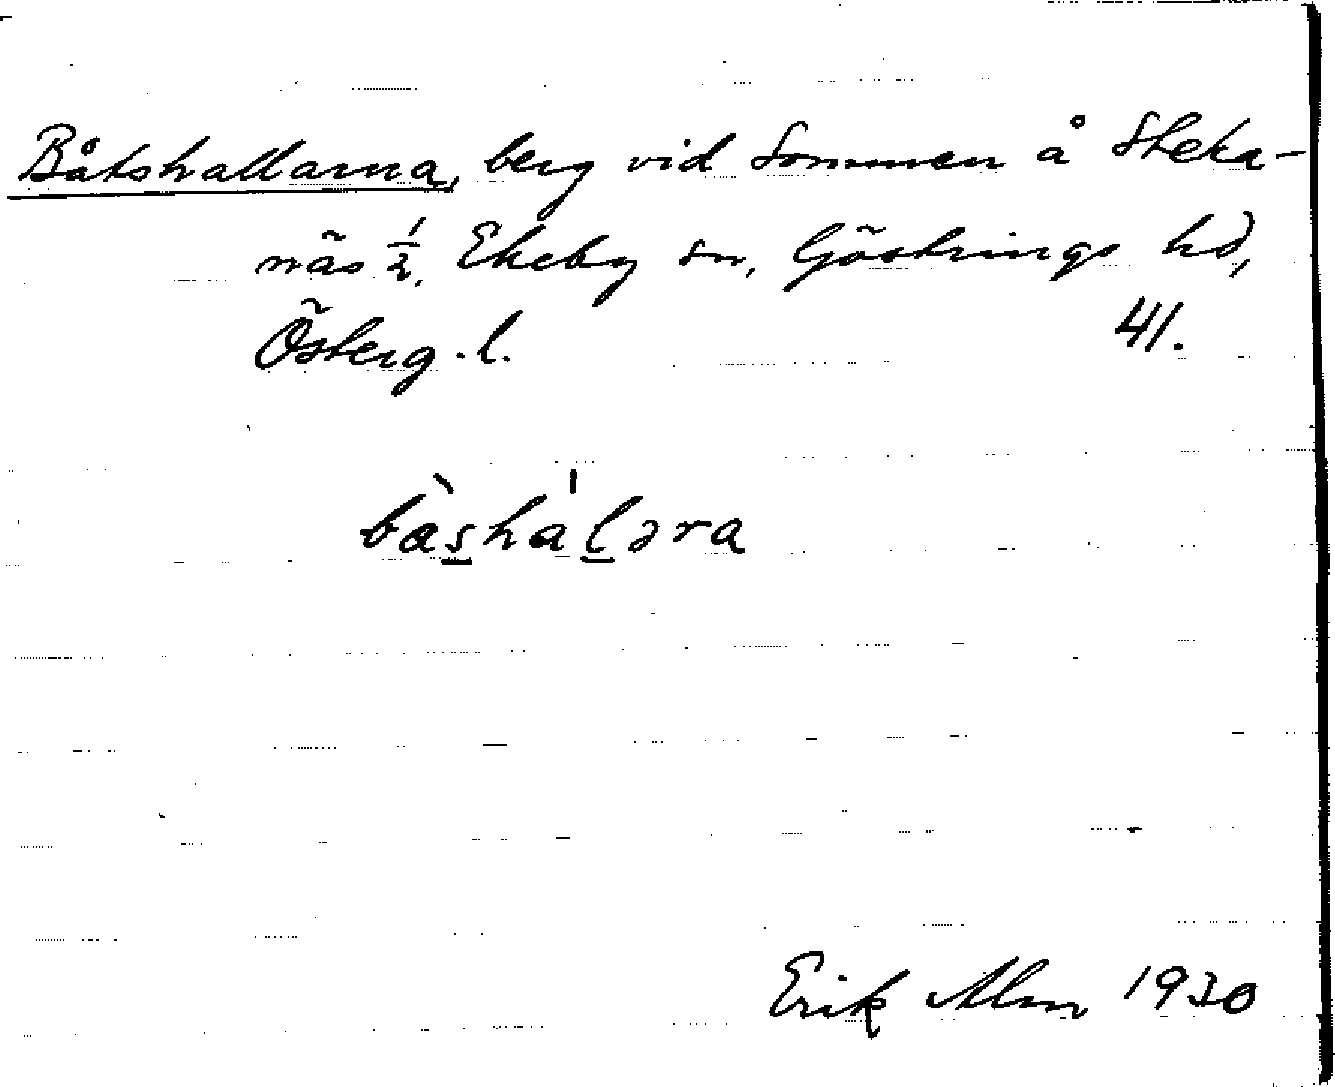 Båtshallarna, berg vid Sommen å Steka-
näs 1/2, Ekeby sn, Göstrings hd,
Österg. l. 41.
bàshálǝra
Erik Alm 1930